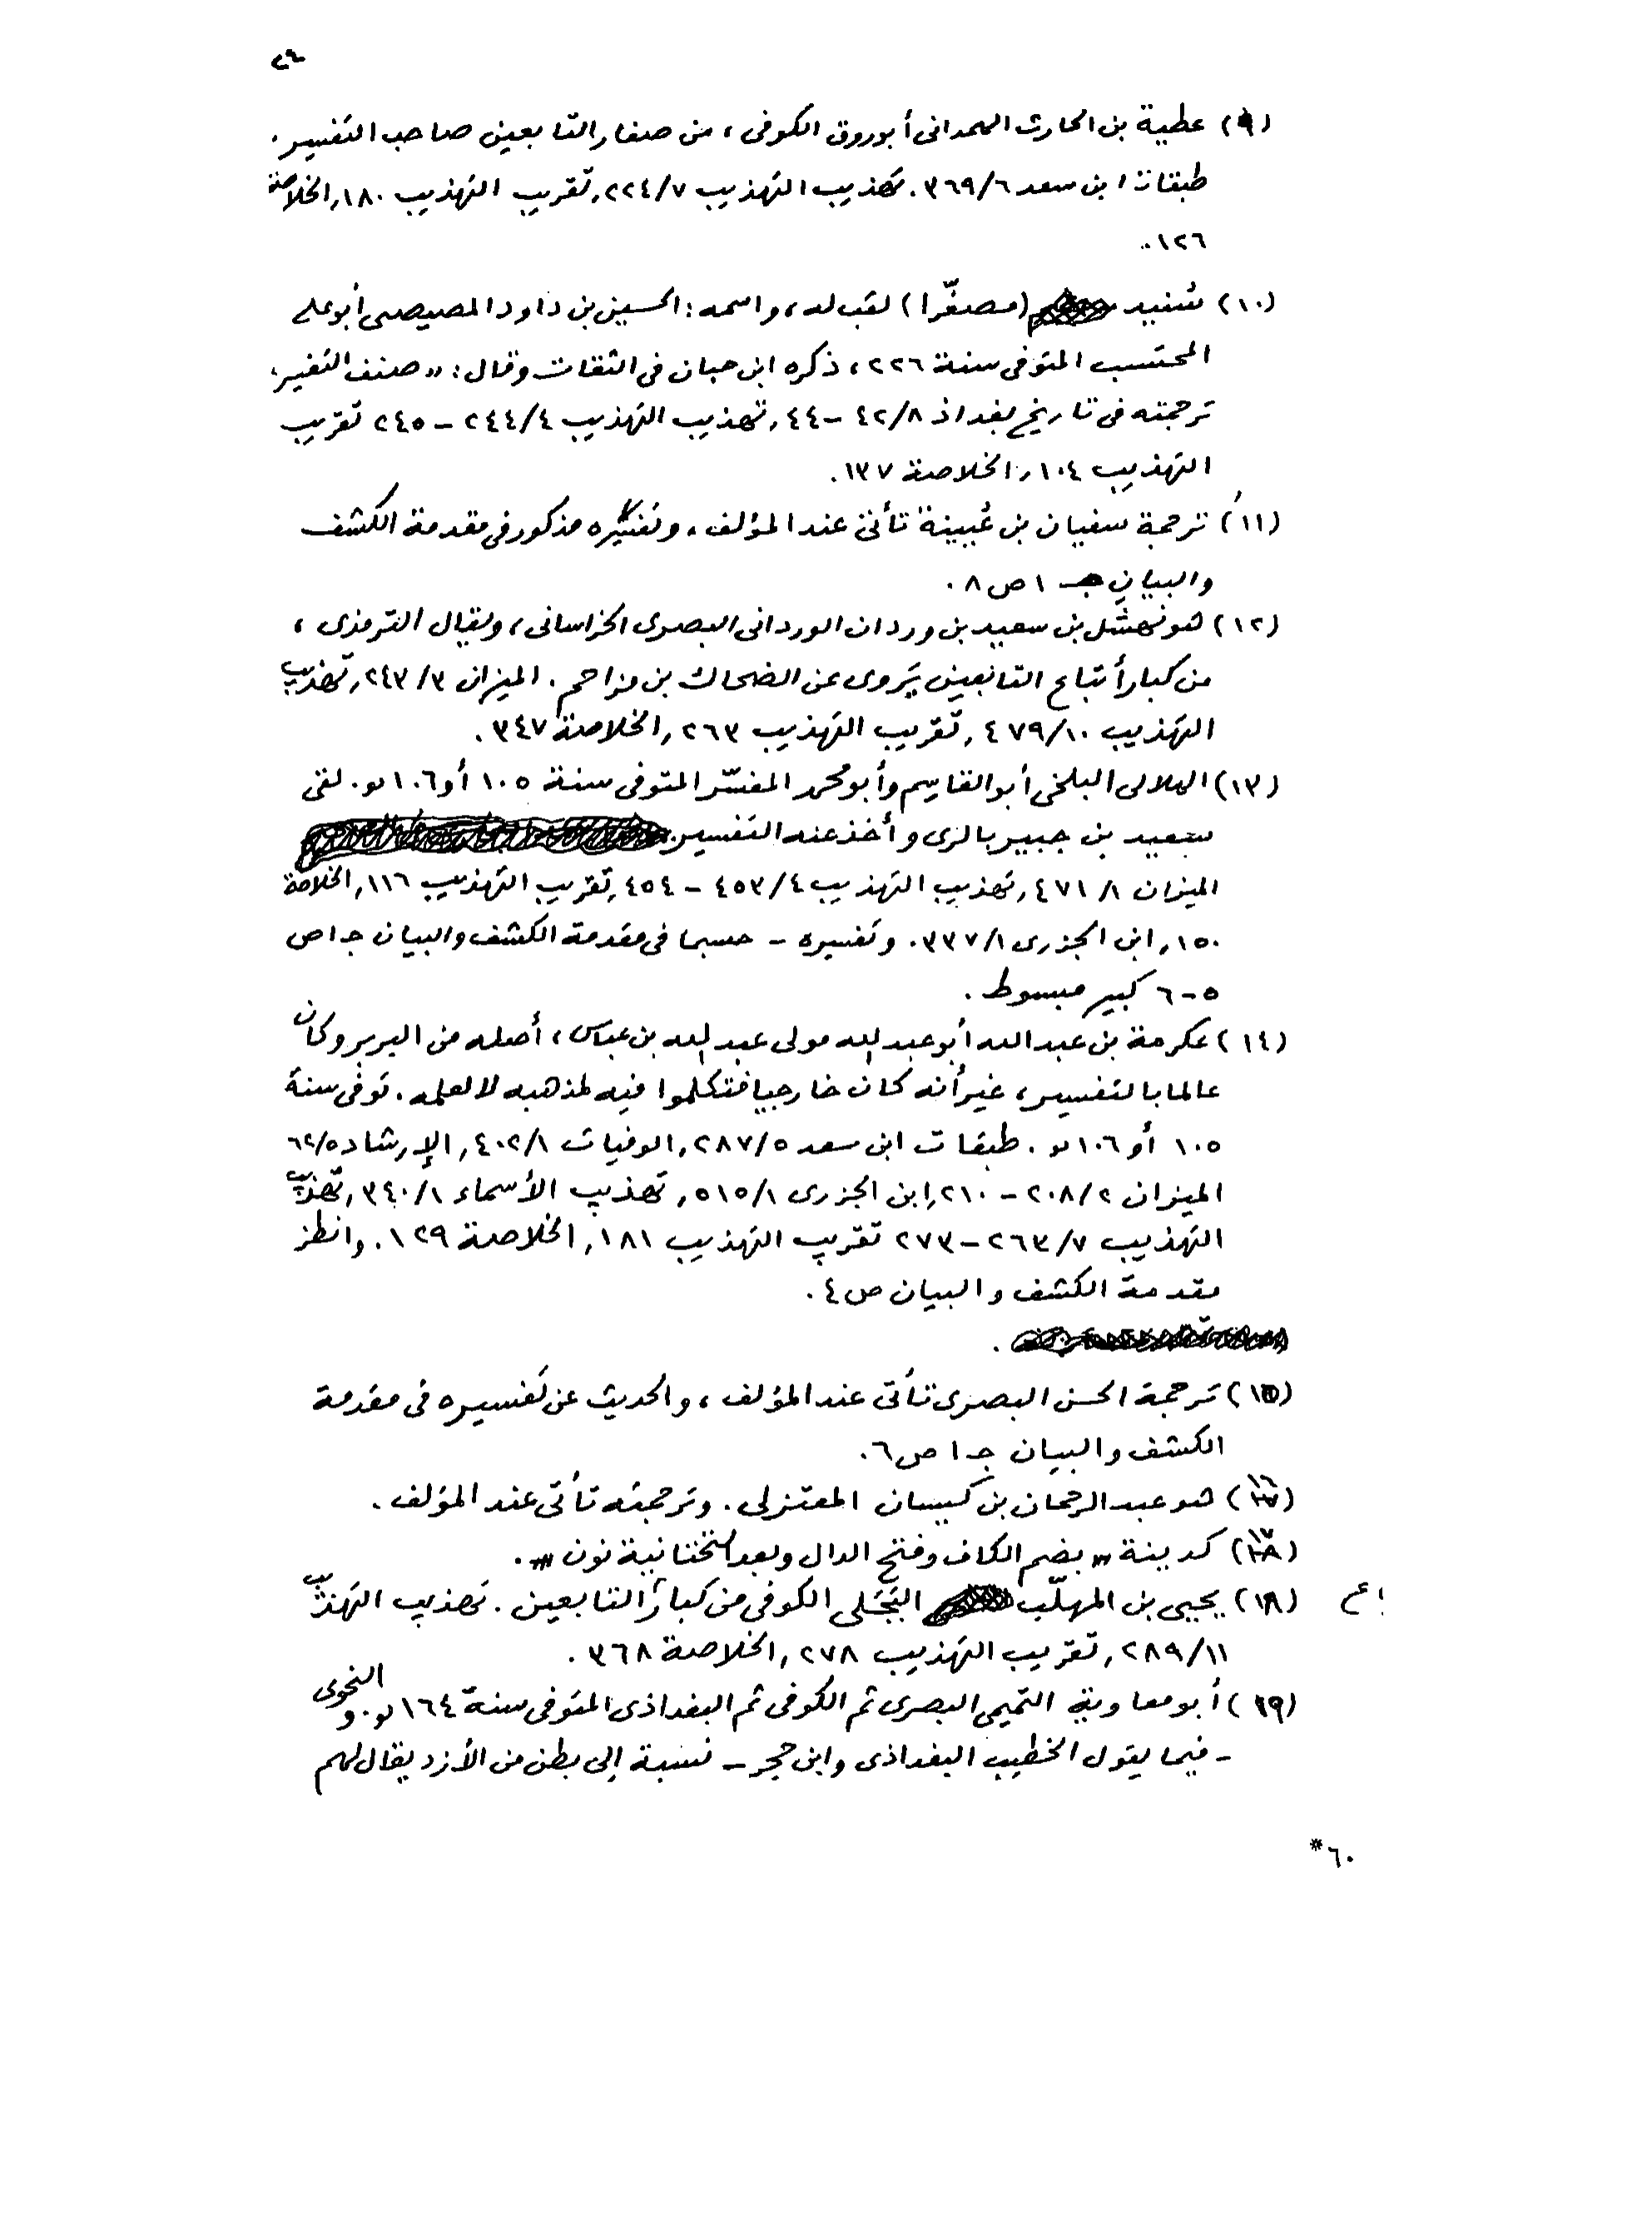 ٢٩
(٩) عطية بن الحارث الهمدانى أبو روق الكوفى، من صغار التابعين صاحب التفسير.
طبقات ابن سعد ٣٦٩/٦. تهذيب التهذيب ٢٢٤/٧، تقريب التهذيب ١٨٠، الخلاصة
١٢٦.
(١٠) سُنيد (مصغّرا) لقب له، واسمه: الحسين بن داود المصيصى أبو على
المحتسب المتوفى سنة ٢٢٦، ذكره ابن حبان فى الثقات وقال: «صنف التفسير»
ترجمته فى تاريخ بغداد ٤٢/٨ – ٤٤، تهذيب التهذيب ٢٤٤/٤ – ٢٤٥ تقريب
التهذيب ١٠٤، الخلاصة ١٣٧.
(١١) ترجمة سفيان بن عُيينة تأتى عند المؤلف، وتفسيره مذكور فى مقدمة الكشف
والبيان جـ ١ ص ٨.
(١٢) هو نهشل بن سعيد بن وردان الوردانى البصرى الخراسانى، ويقال الترمذى،
من كبار أتباع التابعين يَروى عن الضحاك بن مزاحم. الميزان ٢٤٣/٣، تهذيب
التهذيب ٤٧٩/١٠، تقريب التهذيب ٢٦٣، الخلاصة ٣٤٧.
(١٣) الهلالى البلخى أبو القاسم وأبو محمد المفسّر المتوفى سنة ١٠٥ أو ١٠٦هـ. لقى
سعيد بن جبير بالرى وأخذ عنه التفسير.
الميزان ٤٧١/١، تهذيب التهذيب ٤٥٣/٤ – ٤٥٤، تقريب التهذيب ١١٦، الخلاصة
١٥٠، ابن الجزرى ٣٣٧/١. وتفسيره – حسبما فى مقدمة الكشف والبيان جـ ١ ص
٥-٦ كبير مبسوط.
(١٤) عكرمة بن عبد الله أبو عبد الله مولى عبد الله بن عباس، أصله من البربر وكان
عالما بالتفسير، غير أنه كان خارجيا فتكلموا فيه لمذهبه لا لعلمه. توفى سنة
١٠٥ أو ١٠٦هـ. طبقات ابن سعد ٢٨٧/٥، الوفيات ٤٠٢/١، الإرشاد ٦٢/٥
الميزان ٢٠٨/٢ – ٢١٠، ابن الجزرى ٥١٥/١، تهذيب الأسماء ٣٤٠/١، تهذيب
التهذيب ٢٦٣/٧ – ٢٧٣ تقريب التهذيب ١٨١، الخلاصة ١٢٩. وانظر
مقدمة الكشف والبيان ص ٤.
(١٥) ترجمة الحسن البصرى تأتى عند المؤلف، والحديث عن تفسيره فى مقدمة
الكشف والبيان جـ ١ ص ٦.
(١٦) هو عبد الرحمان بن كيسان المعتزلى. وترجمته تأتى عند المؤلف.
(١٧) كدينة «بضم الكاف وفتح الدال وبعد التحتانية نون».
(١٨) يحيى بن المهلّب البَجَلى الكوفى من كبار التابعين. تهذيب التهذيب
٢٨٩/١١، تقريب التهذيب ٢٧٨، الخلاصة ٣٦٨.
(١٩) أبو معاوية التميمى البصرى ثم الكوفى ثم البغداذى المتوفى سنة ١٦٤هـ. و النحوى
– فيما يقول الخطيب البغداذى وابن حجر – نسبة إلى بطن من الأزد يقال لهم
٦٠*